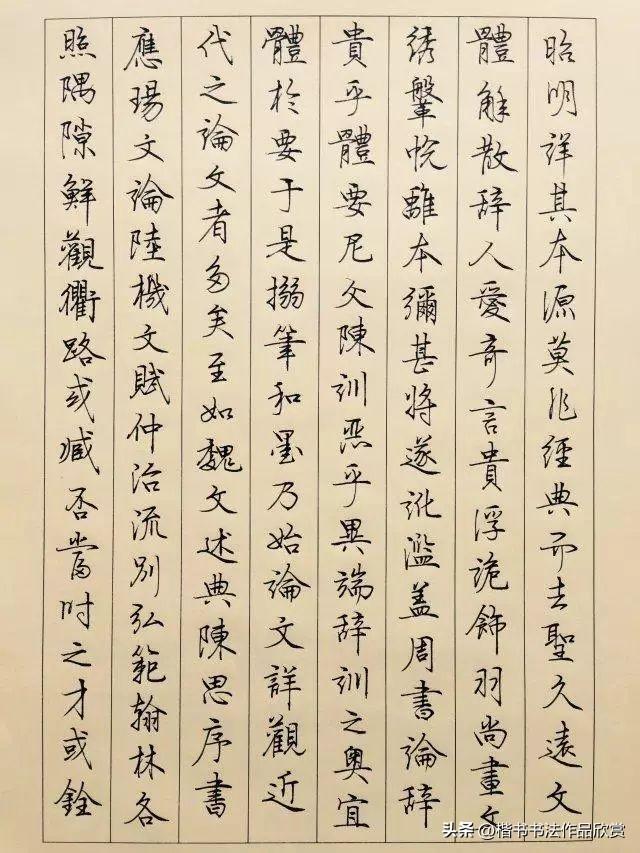 昭明詳其本源莫非經典而去聖久遠文
體解散辞人愛奇言貴浮詭飾羽尚畫文
绣鞶帨離本彌甚将遂訛濫盖周書論辞
貴乎體要尼父陳訓惡乎異端辞訓之奥宜
體於要于是搦筆和墨乃始論文詳觀近
代之論文者多矣至如魏文述典陳思序書
應瑒文論陸機文賦仲洽流别弘範翰林各
照隅隙鮮觀衢路或臧否當时之才或銓
头条 @楷书书法作品欣赏